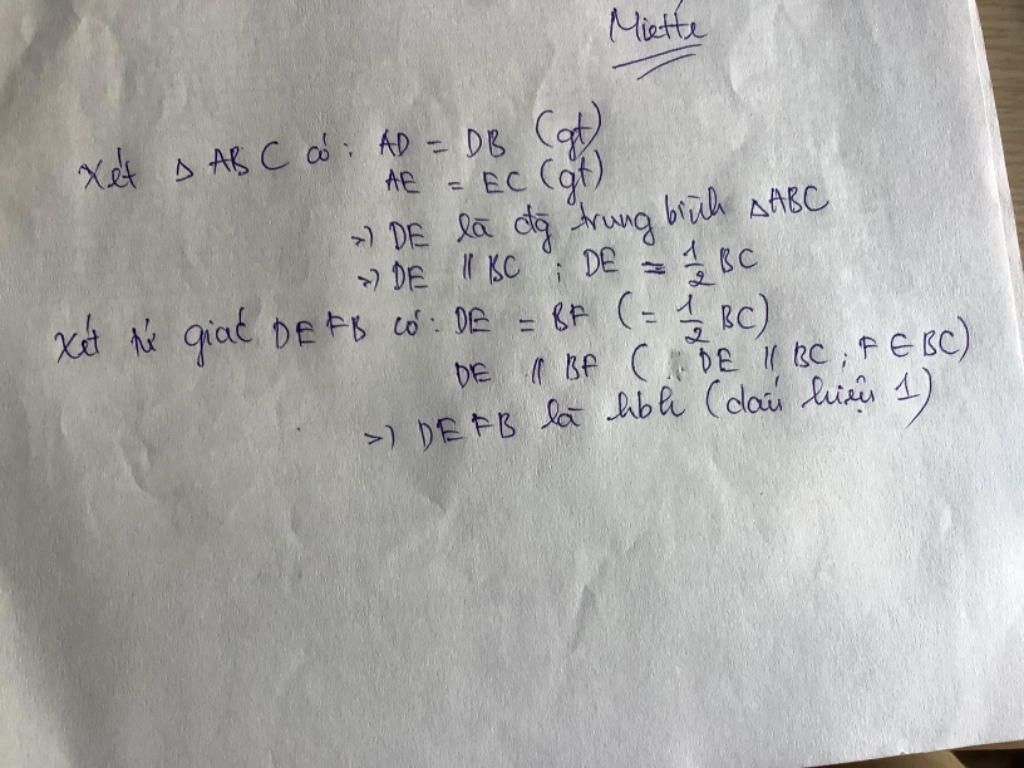 Miette
Xét Δ ABC có: AD = DB (gt)
AE = EC (gt)
=) DE là đg trung bình ΔABC
=) DE // BC ; DE = 1/2 BC
Xét tứ giác DEFB có: DE = BF (= 1/2 BC)
DE // BF ( DE // BC ; F ∈ BC)
=) DEFB là hbh (dấu hiệu 1)